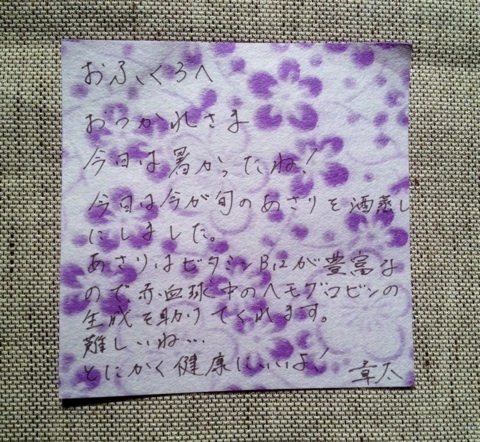 おふくろへ
おつかれさま
今日は暑かったね!
今日は今が旬のあさりを酒蒸し
にしました。
あさりはビタミンB12が豊富な
ので赤血球中のヘモグロビンの
生成を助けてくれます。
難しいね…
とにかく健康にいいよ!
章太